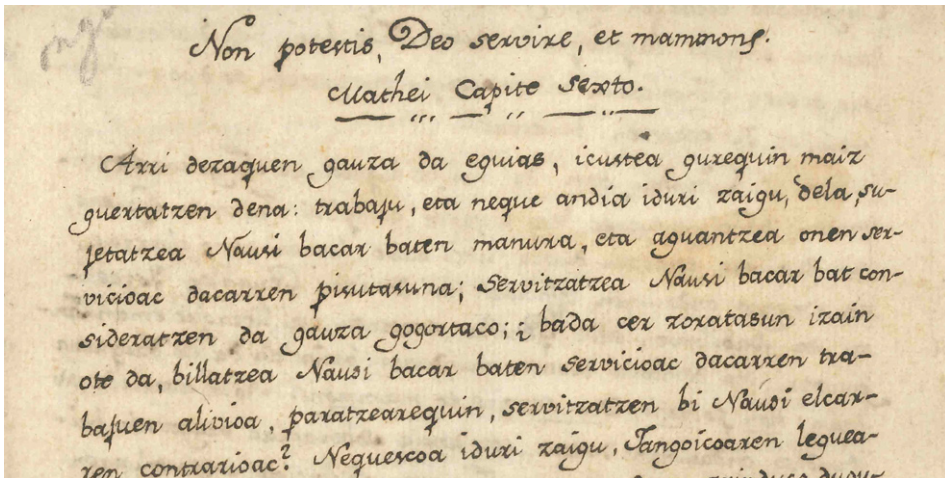 Non potestis, Deo servire, et mammonę.
Mathei Capite Sexto.
Arri dezaquen gauza da eguias, icustea gurequin maiz
guertatzen dena: trabaju, eta neque andia iduri zaigu, dela, su-
jetatzea Nausi bacar baten manura, eta aguantzea onen ser-
vicioac dacarren pisutasuna; Servitzatzea Nausi bacar bat con-
sideratzen da gauza gogortaco; ¿bada cer zoratasun izain
ote da, billatzea Nausi bacar baten servicioac dacarren tra-
bajuen alivioa, paratzearequin, servitzatzen bi Nausi elcar-
ren contrarioac? Nequescoa iduri zaigu, Jangoicoaren leguea-